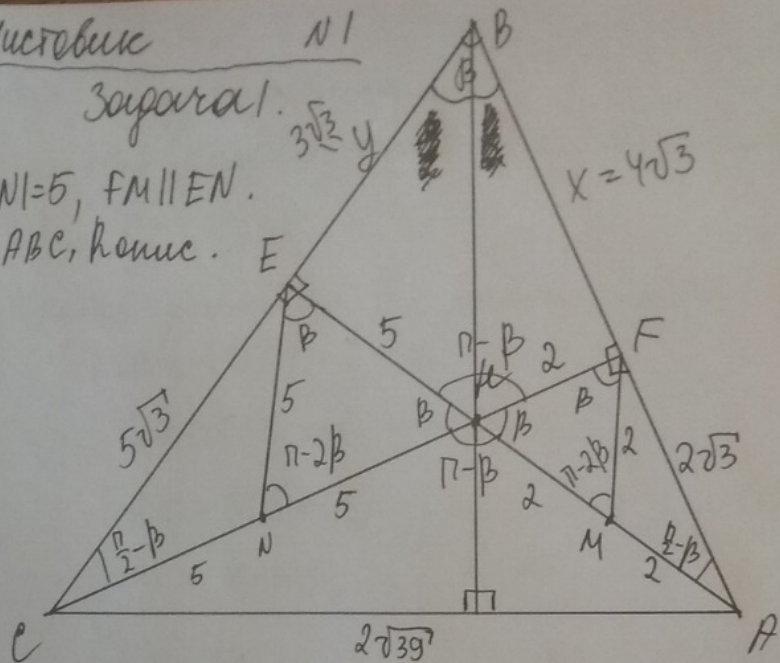 Чистовик N1
Задача 1.
N|=5, FM||EN.
ABC, Rопис.
B
β
3√3 y
x = 4√3
E
β
5
π-β
2
F
5√3
5
β
H
β
β
π-2β
π-β
π-2β
2
2√3
5
2
π/2-β
5
N
M
2
π/2-β
C
2√39
A